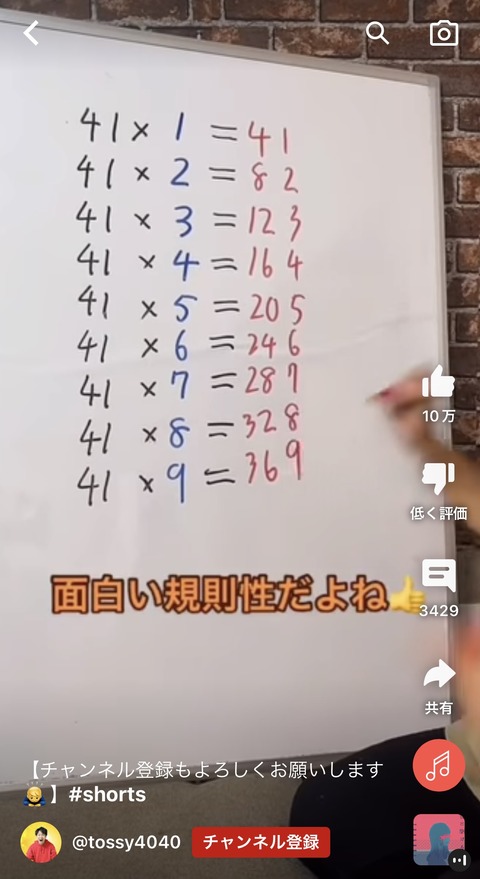 41 × 1 = 41
41 × 2 = 82
41 × 3 = 123
41 × 4 = 164
41 × 5 = 205
41 × 6 = 246
41 × 7 = 287
41 × 8 = 328
41 × 9 = 369
10万
低く評価
面白い規則性だよね👍
3429
共有
【チャンネル登録もよろしくお願いします
🙇】#shorts
@tossy4040 チャンネル登録